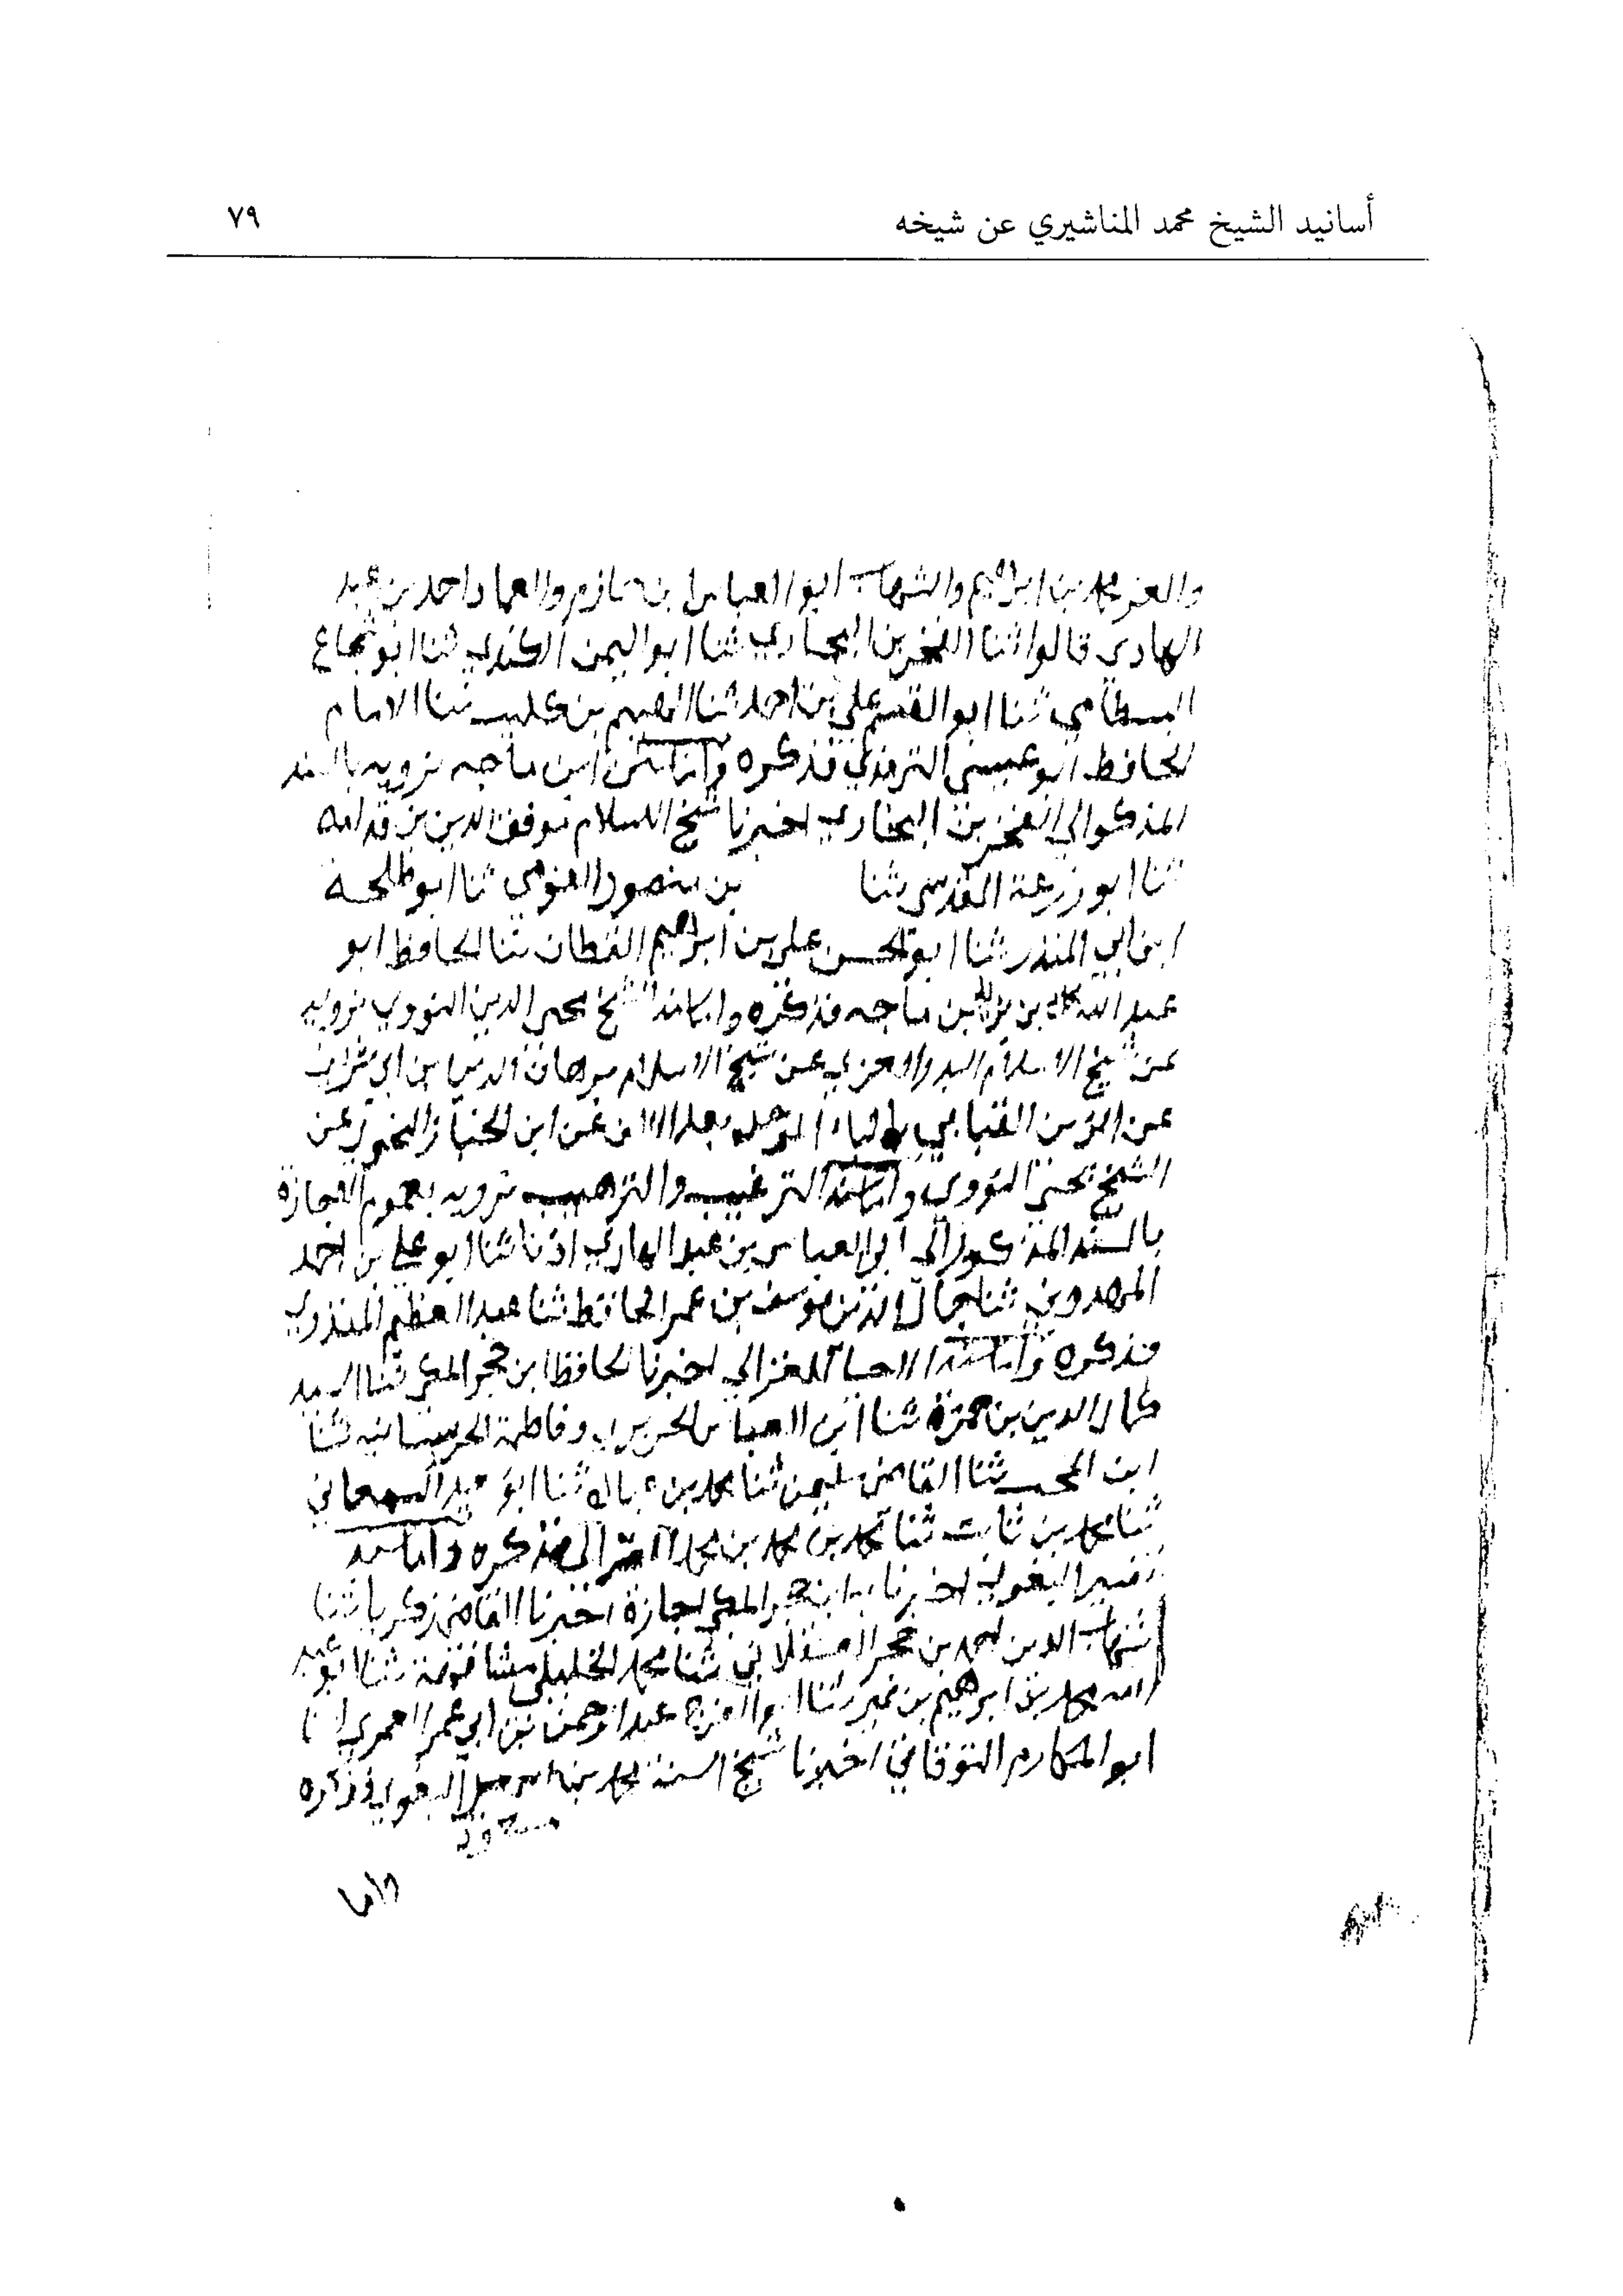 أسانيد الشيخ محمد المناشيري عن شيخه
٧٩
والعز محمد بن ابراهيم والشهاب ابو العباس بن والعماد احمد بن عبد
الهادي قالوا ثنا الفخر بن البخاري ثنا ابو اليمن الكندي ثنا ابو شجاع
البسطامي ثنا ابو القسم علي بن احمد ثنا الهيثم بن كليب ثنا الامام
الحافظ ابو عيسى الترمذي فذكره واما سنن ابن ماجه نرويه بالسند
المذكور الى الفخر بن البخاري اخبرنا شيخ الاسلام موفق الدين بن قدامه
ثنا ابو زرعة المقدسي ثنا بن منصور ثنا ابو طلحه
ابن ابي المنذر ثنا ابو الحسن علي بن ابراهيم القطان ثنا الحافظ ابو
عبد الله محمد بن يزيد بن ماجه فذكره واما سند الشيخ محيي الدين النووي نرويه
عن شيخ الاسلام البدر الغزي عن شيخ الاسلام برهان الدين بن ابي شريف
عن الزين القبابي بالباء الموحده بعد الالف عن ابن الخباز عن
الشيخ محيى النووي واما سند الترغيب والترهيب نرويه بعموم الاجازة
بالسند المذكور الى ابو العباس بن عبد الهادي اذنا ثنا ابو علي بن احمد
المهدوي ثنا جمال الدين يوسف بن عمر الحافظ ثنا عبد العظيم المنذري
فذكره واما سند الاحيا للغزالي اخبرنا الحافظ ابن حجر المكي ثنا السيد
كمال الدين بن حمزة ثنا ابي العباس الحريري وفاطمة الحرستانيه ثنا
ابن المحب ثنا القاضي سليمن ثنا محمد بن عباد ثنا ابو سعيد السمعاني
ثنا محمد بن ثابت ثنا محمد بن محمد بن محمد الغزالي فذكره واما سند
تفسير البغوي اخبرنا به ابن حجر المكي اجازة اخبرنا القاضي زكريا ثنا
شهاب الدين احمد بن حجر العسقلاني ثنا محمد الخليلي مشافهة ثنا ابو عبد
الله محمد بن ابراهيم بن نمير ثنا ابو الفرج عبد الرحمن بن ابي عمر العمري انا
ابو المكارم النوقاني اخبرنا شيخ السنة محمد بن البغوي فذكره
مسعود
واما